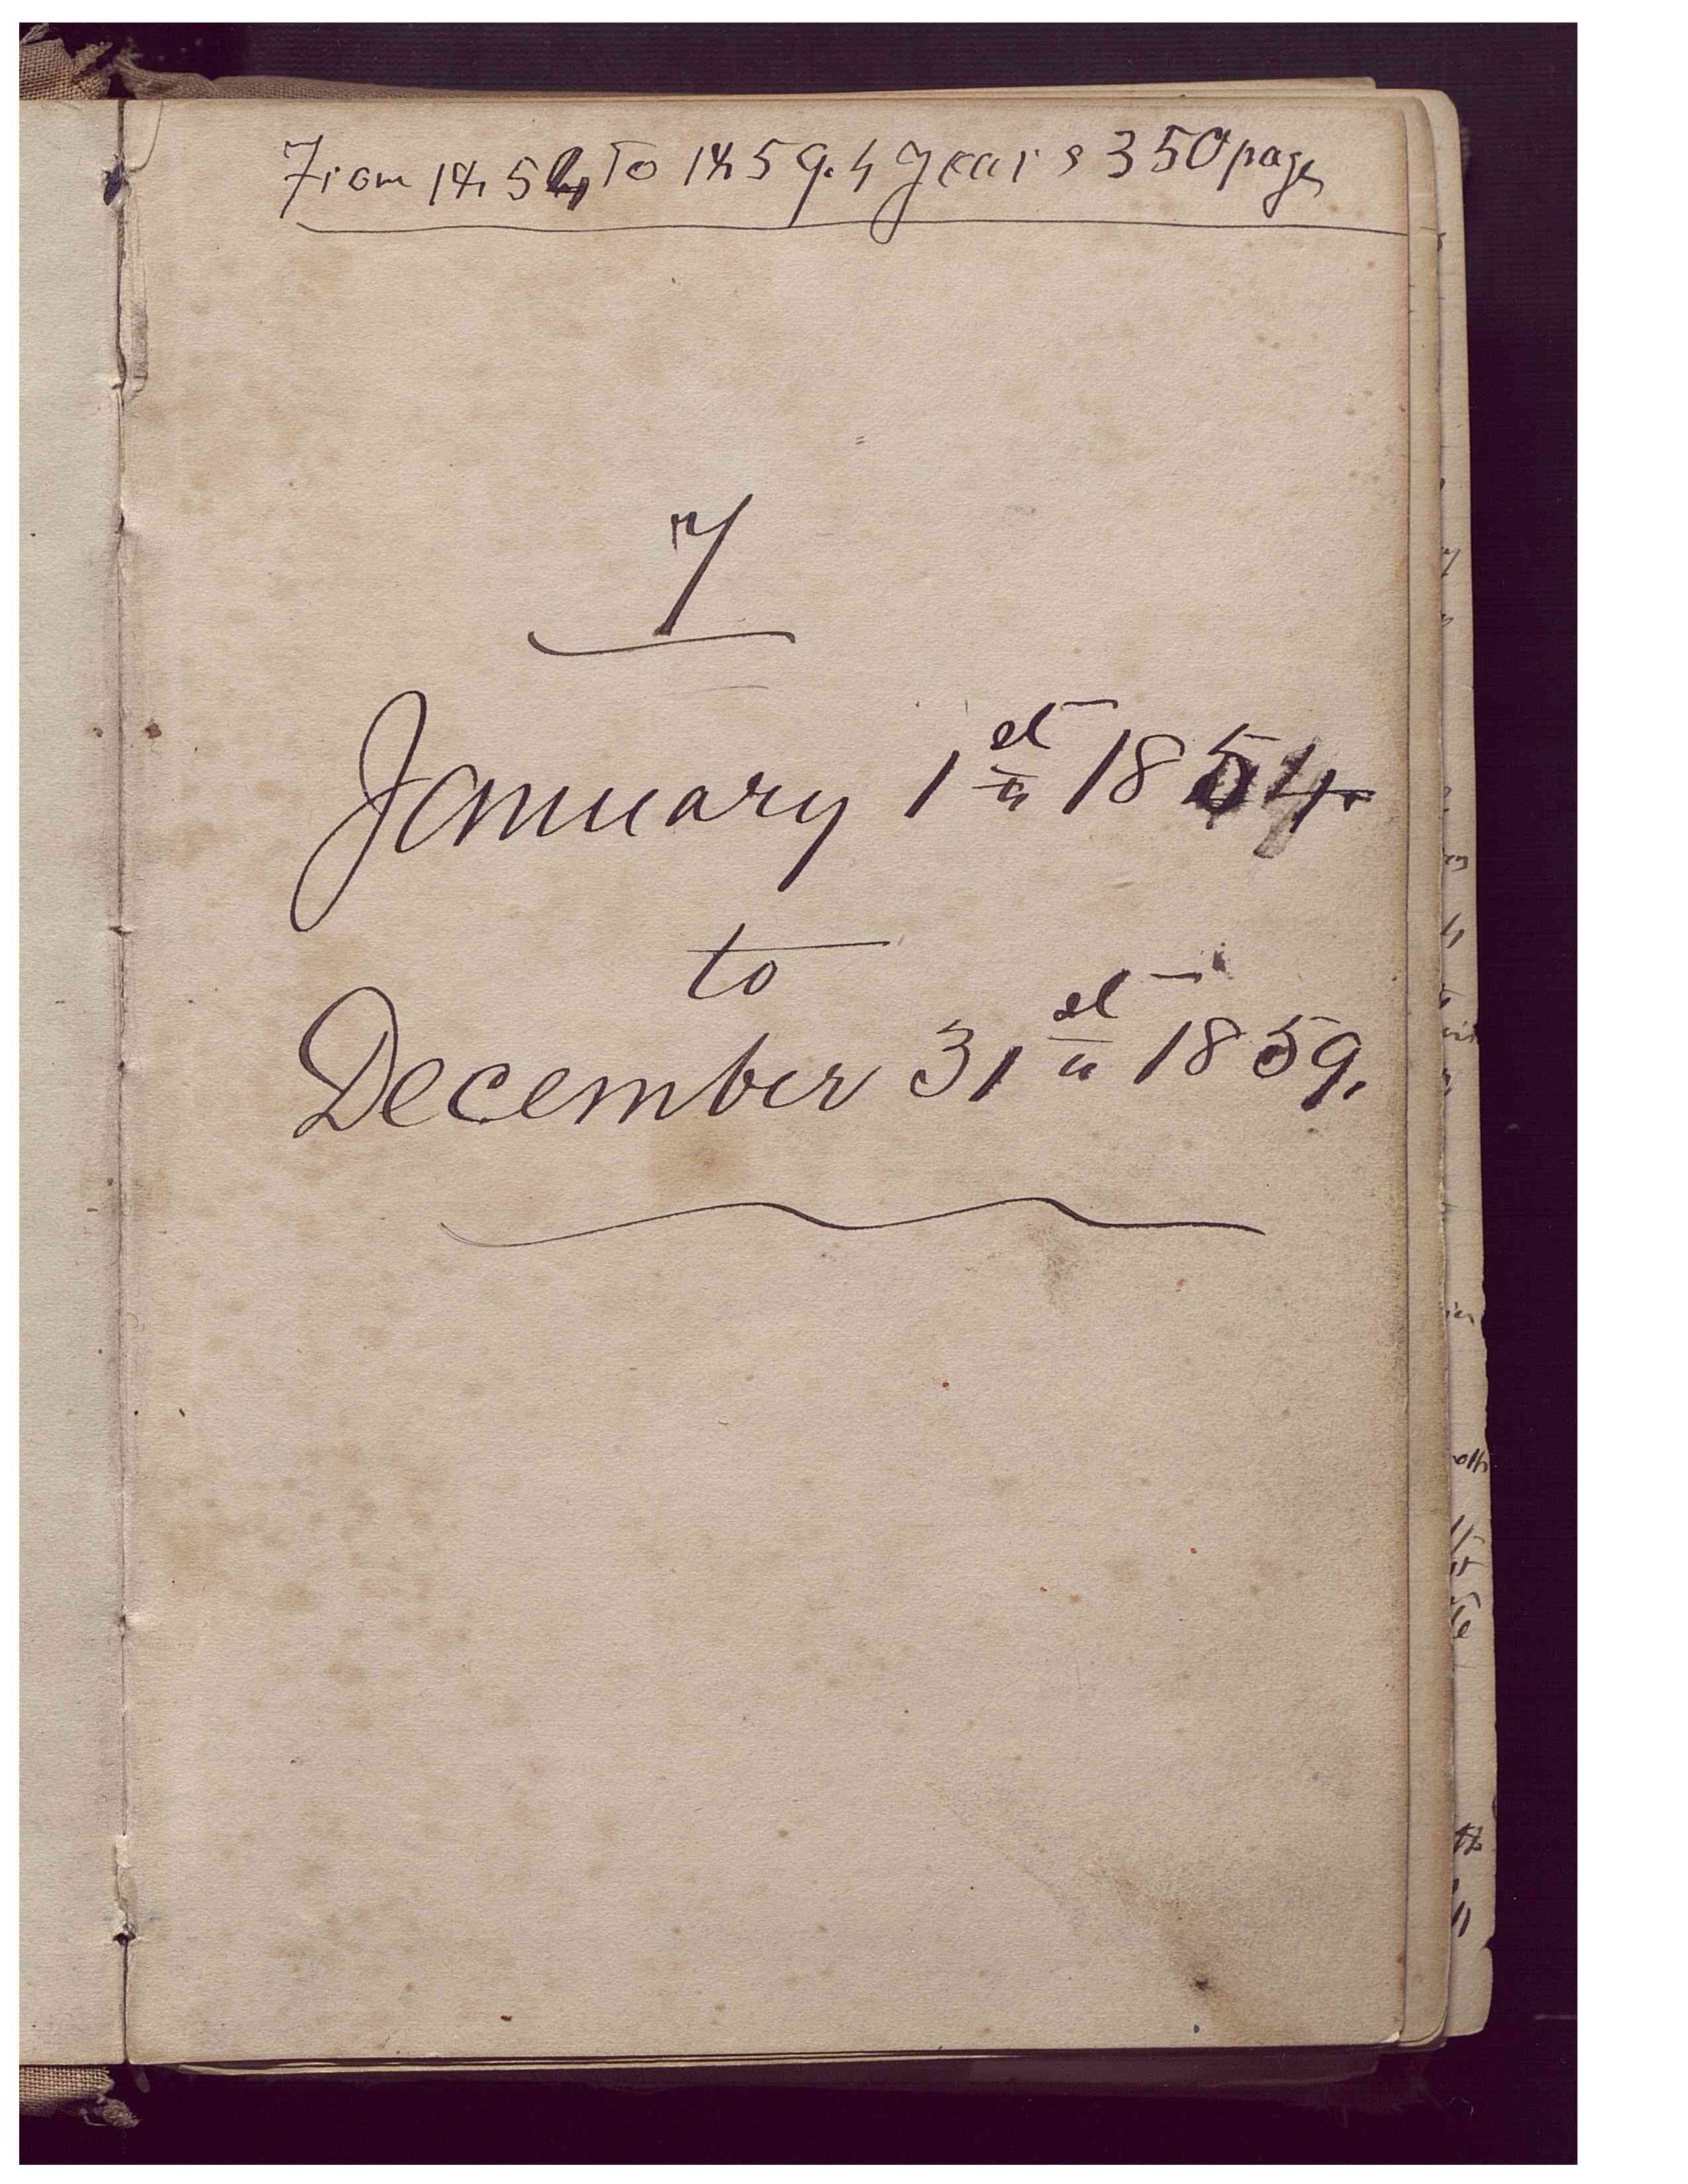 From 1854, To 1859. 4 years 350 pages
7
January 1st 1854.
to
December 31st 1859.